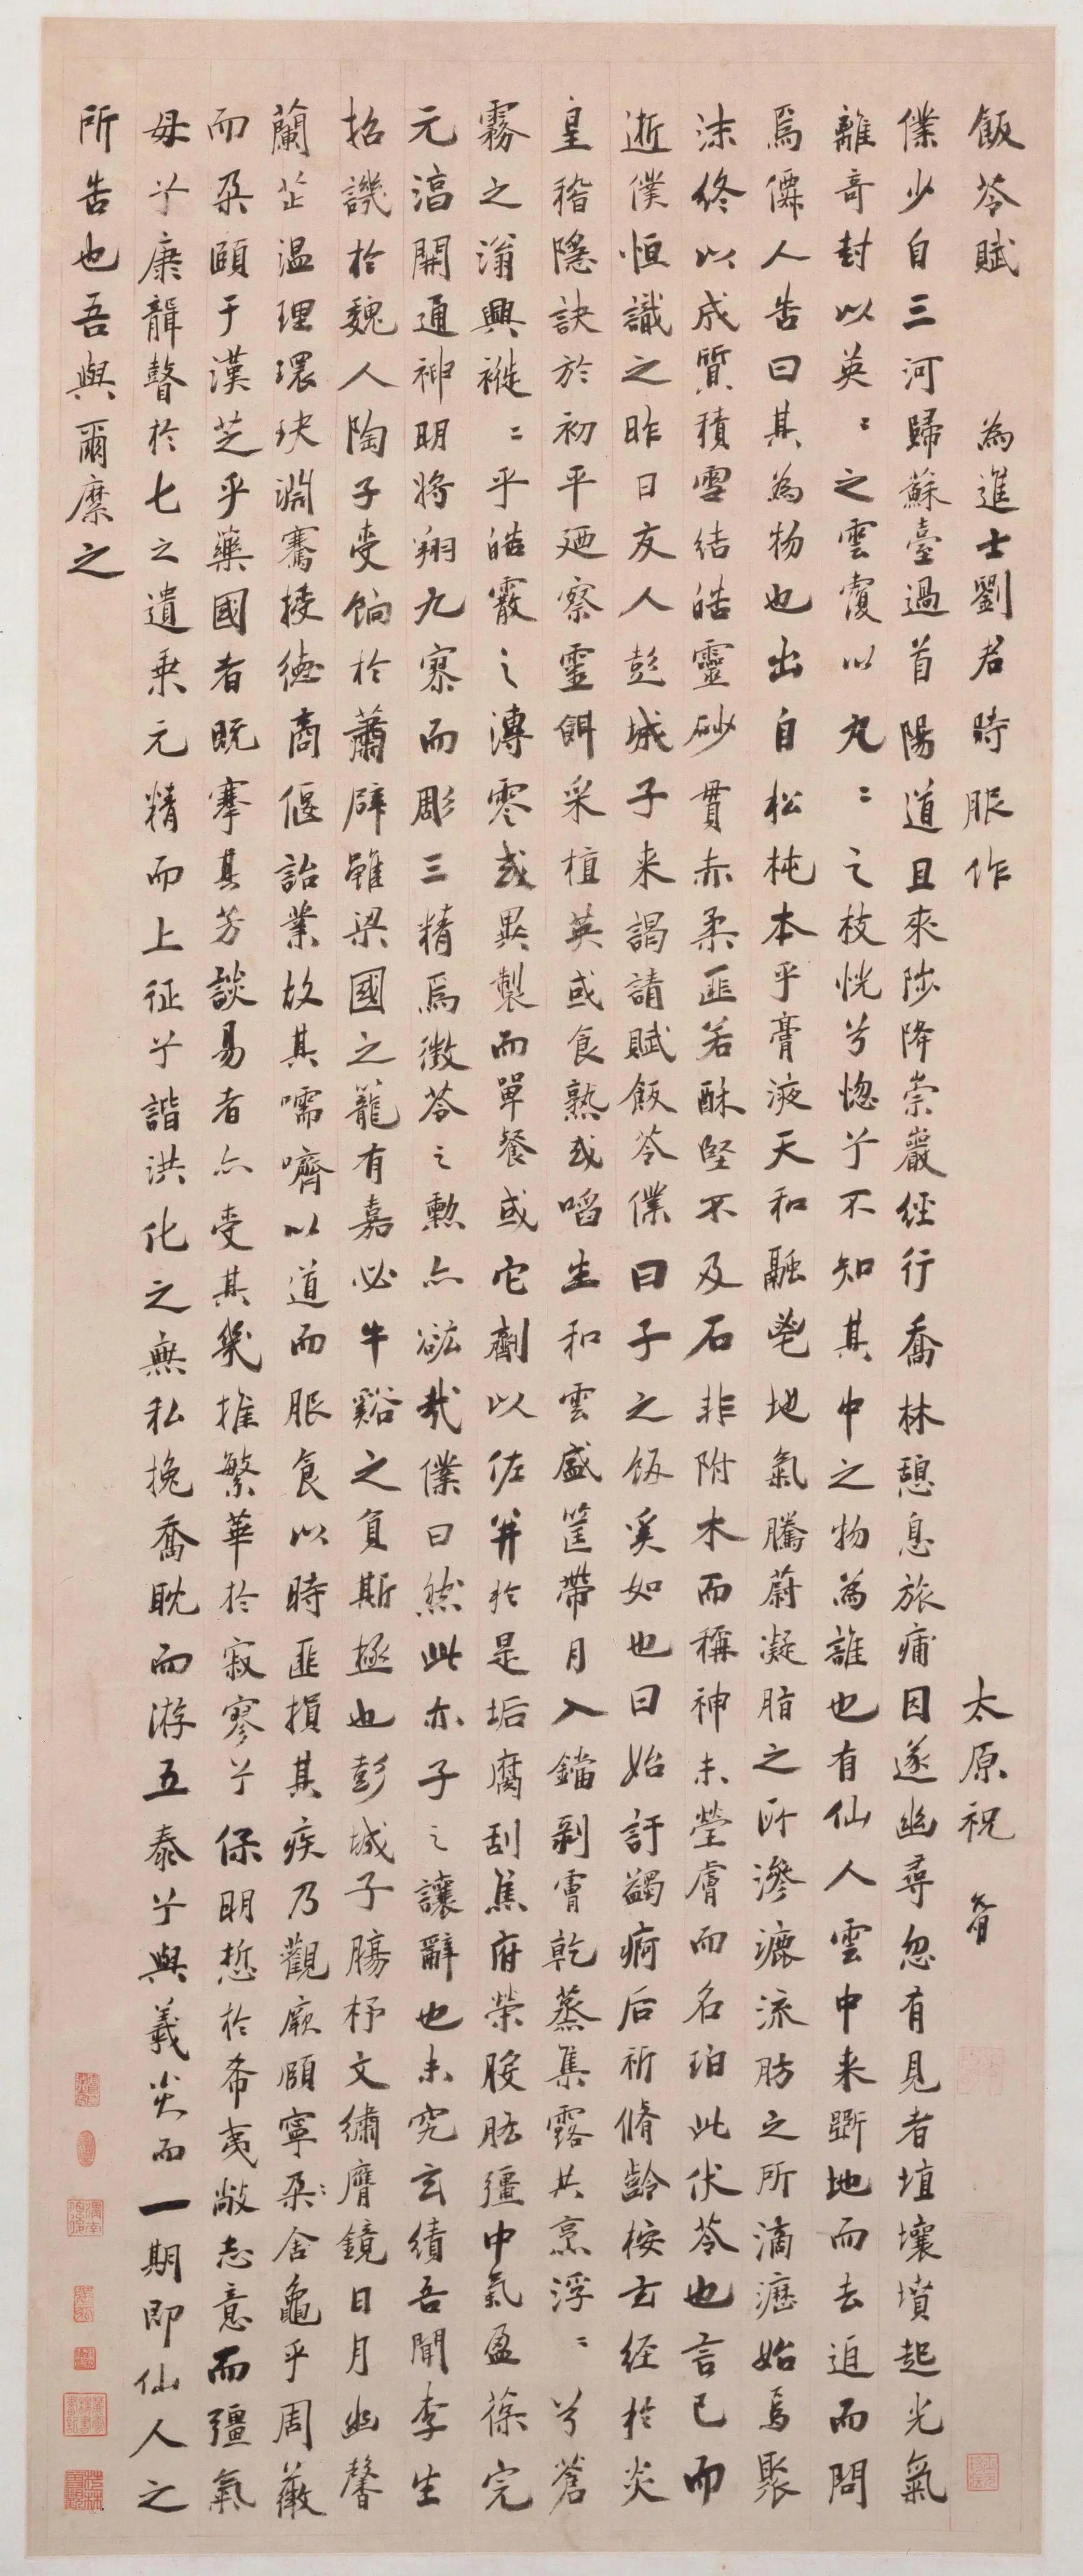 飯苓賦 為進士劉君時服作 太原祝
僕少自三河歸蘇臺過首陽道且來陟降崇巖經行喬林憩息旅痡因遂幽尋忽有見者埴壤墳起光氣
離奇封以英〻之雲覆以丸〻之枝恍兮惚兮不知其中之物為誰也有仙人雲中来斲地而去追而問
焉僊人告曰其為物也出自松杶本乎膏液天和融鬯地氣騰蔚凝脂之所滲漉流肪之所滴瀝始焉聚
沫終以成質積雪結皓靈砂貫赤柔匪若酥堅不及石非附木而稱神未瑩膚而名珀此伏苓也言已而
逝僕恒識之昨日友人彭城子来謁請賦飯苓僕曰子之飯奚如也曰始訏蠲痾后祈脩齡桉玄經於炎
皇稽隱訣於初平廼察靈餌采植英或食熟或啗生和雲盛筐帶月入鐺剝膚乾蒸集露共烹浮〻兮蒼
霧之滃興褷〻乎皓霰之漙零或異製而單餐或它劑以佐并於是垢腐刮焦府榮胺胠彊中氣盈葆完
元滈開通神明將翔九寨而彫三精焉徵苓之勲亦谹哉僕曰然此亦子之讓辭也未究玄績吾聞李生
招譏於魏人陶子受餉於蕭辟雖梁國之籠有嘉必牛谿之負斯極也彭城子腸杼文繡膺鏡日月幽馨
蘭芷温理環玦淵騫接德商偃詒業故其嚅嚌以道而服食以時匪損其疾乃觀厥頤寧朶〻舍龜乎周薇
而朶頤于漢芝乎藥國者既搴其芳談易者亦受其幾推繁華於寂寥兮保明悊於希夷敞志意而彊氣
毋兮廉聲瞽於七之遺乘元精而上征兮諧洪化之無私挽喬耽而游五泰兮與羲炎而一期即仙人之
所告也吾與爾縻之